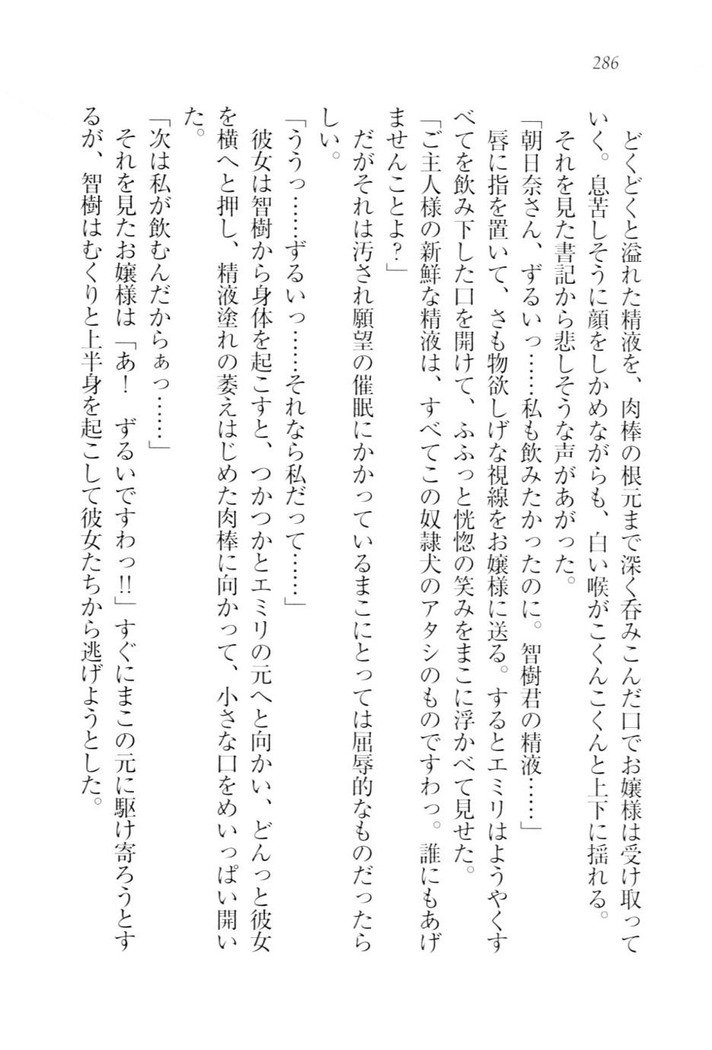 286
どくどくと溢れた精液を、肉棒の根元まで深く呑みこんだ口でお嬢様は受け取って
いく。息苦しそうに顔をしかめながらも、白い喉がこくんこくんと上下に揺れる。
それを見た書記から悲しそうな声があがった。
「朝日奈さん、ずるいっ……私も飲みたかったのに。智樹君の精液……」
唇に指を置いて、さも物欲しげな視線をお嬢様に送る。するとエミリはようやくす
べてを飲み下した口を開けて、ふふっと恍惚の笑みをまこに浮かべて見せた。
「ご主人様の新鮮な精液は、すべてこの奴隷犬のアタシのものですわっ。誰にもあげ
ませんことよ？」
だがそれは汚され願望の催眠にかかっているまこにとっては屈辱的なものだったら
しい。
「ううっ……ずるいっ……それなら私だって……」
彼女は智樹から身体を起こすと、つかつかとエミリの元へと向かい、どんっと彼女
を横へと押し、精液塗れの萎えはじめた肉棒に向かって、小さな口をめいっぱい開い
た。
「次は私が飲むんだからぁっ……」
それを見たお嬢様は「あ！　ずるいですわっ!!」すぐにまこの元に駆け寄ろうとす
るが、智樹はむくりと上半身を起こして彼女たちから逃げようとした。